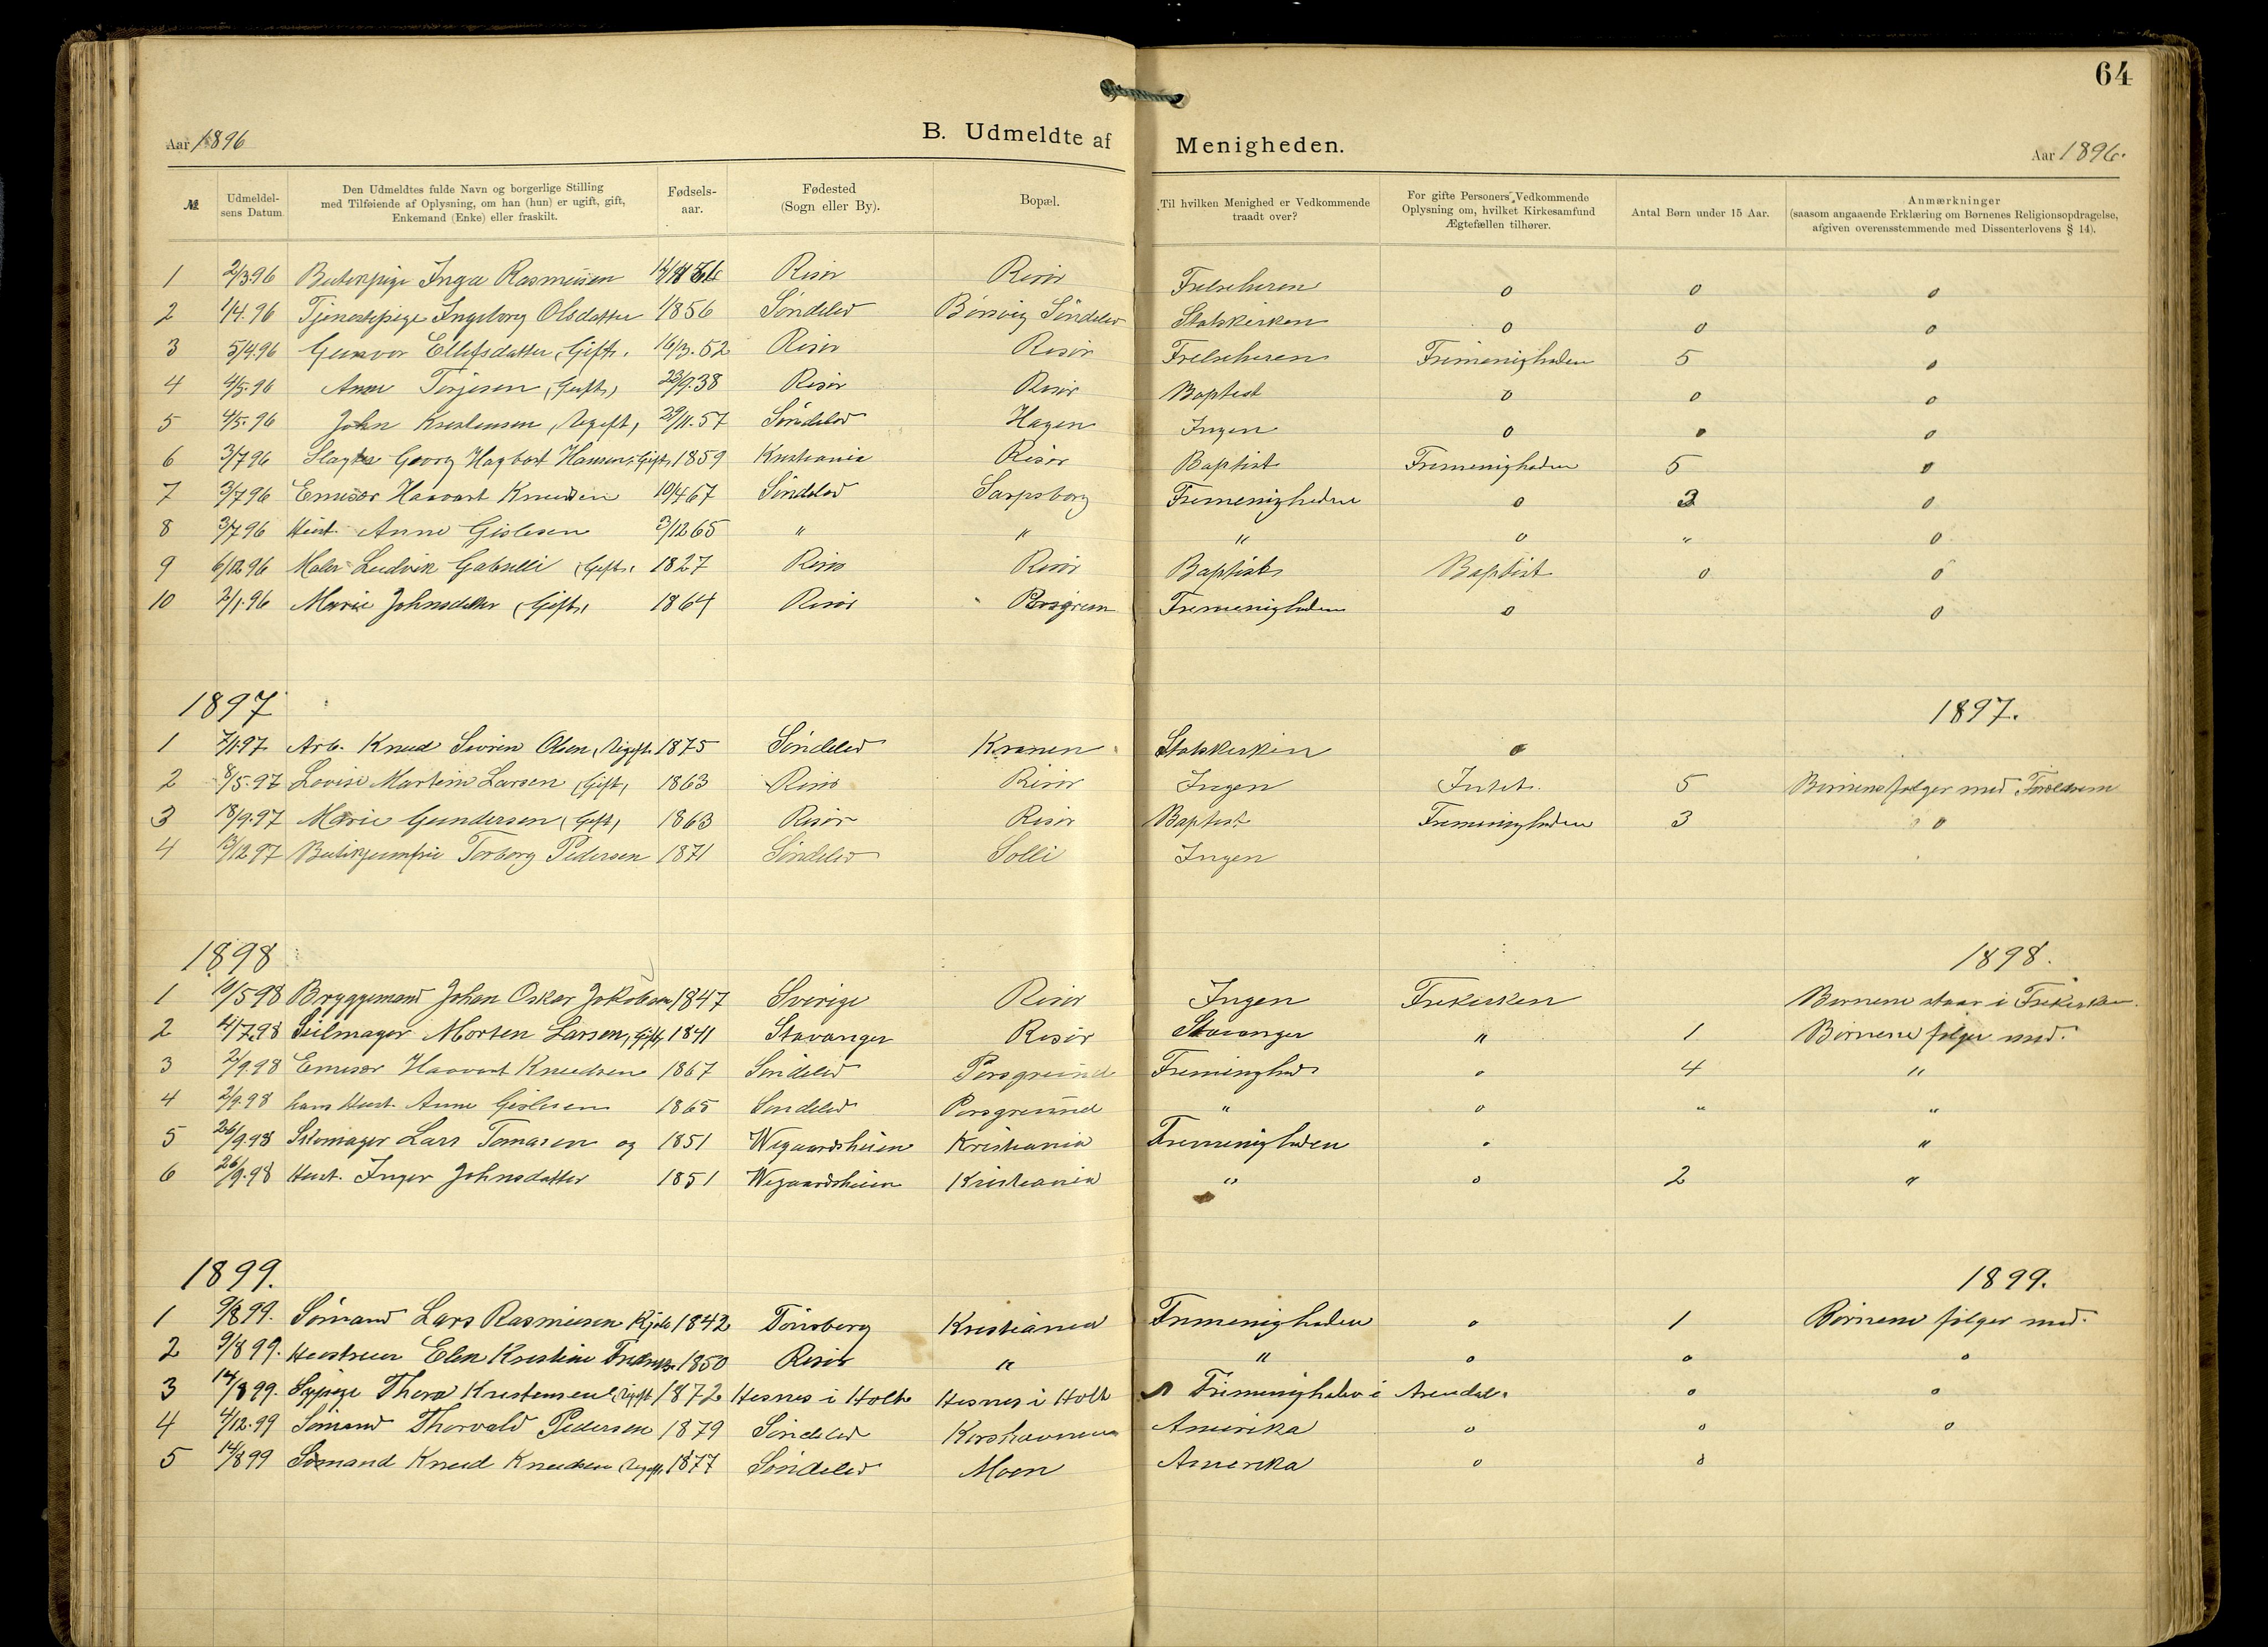 64
Aar 1896 B. Udmeldte af Menigheden. Aar 1896.
№ Udmeldelsens Datum Den Udmeldtes fulde Navn og borgerlige Stilling med Tilføiende af Oplysning, om han (hun) er ugift, gift, Enkemand (Enke) eller fraskilt. Fødselsaar. Fødested (Sogn eller By). Bopæl. Til hvilken Menighed er Vedkommende traadt over? For gifte Personers Vedkommende Oplysning om, hvilket Kirkesamfund Ægtefællen tilhører. Antal Børn under 15 Aar. Anmærkninger (saasom angaaende Erklæring om Børnenes Religionsopdragelse, afgiven overensstemmende med Dissenterlovens § 14).
1 2/3 96 Butikpige Inga Rasmusen Risør Risør Frelseheren o o o
2 1/4. 96 Tjenestepige Ingeborg Olsdatter 1856 Søndelev Bøsvig Søndelev Statskirken o o o
3 5/4.96 Gunvor Ellefsdatter, Gift. 16/3.52 Risør Risør Frelseheren Frimenigheden 5 o
4 4/5.96 Anne Terjesen (Gift) 23/9.38 Risør Risør Baptist o o o
5 4/5.96 John Kristensen, Ugift, 29/11.57 Søndelev Hagen Ingen o o o
6 3/7 96 Slagter Georg Hagbart Hansen, Gift, 1859 Kristiania Risør Baptist Frimenigheden 5 o
7 3/7 96 Emisær Haavart Knudsen 10/4 67 Søndelev Sarpsborg Frimenigheden o 3 o
8 3/7 96 Hust. Anne Gislesen 3/12 65 " " " o " o
9 6/12 96 Maler Ludvik Gabrielli (Gift. 1827 Risør Risør Baptist Baptist o o
10 2/1.96 Marie Johnsdatter (Gift, 1864 Risør Porsgrun Frimenigheden o o
1897 1897.
1 7/1.97 Arb. Knud Søvren Olsen, Ugift. 1875 Søndelev Kranen Statskirken o
2 8/5.97 Lovise Martine Larsen (Gift, 1863 Risør Risør Ingen Intet. 5 Børnene følger med Forældrene
3 18/9.97 Marie Gundersen (Gift) 1863 Risør Risør Baptist Frimenigheden 3 o o
4 13/12 97 Butikjomfru Torborg Pedersen 1871 Søndelev Solli Ingen
1898 1898.
1 10/5 98 Bryggemand Johan Oskar Jakobsen 1847 Sverige Risør Ingen Frikirken Børnene staar i Frikirken.
2 4/7.98 Seilmager Morten Larsen, Gift, 1841 Stavanger Risør Stavanger " 1 Børnene følger med.
3 2/9.98 Emisær Haavart Knudsen 1867 Søndelev Porsgrund Frimenighed o 4 "
4 2/9.98 hans Hust. Anne Gislesen 1865 Søndelev Porsgrund " o " "
5 26/9.98 Skomager Lars Tomasen og 1851 Wegaardsheien Kristiania Frimenigheden o "
6 26/9.98 Hust. Inger Johnsdatter 1851 Wegaardsheien Kristiania " o 2 "
1899. 1899.
1 9/8 99. Sømand Lars Rasmusen 1842 Tønsberg Kristiania Frimenigheden o 1 Børnene følger med.
2 9/8 99. Hustruen Elen Kristine 1850 Risør " " o o o
3 14/8 99. Sypige Thora Kristensen, Ugift 1872 Hesnes i Holt Hesnes i Holt Frimenigheden i Arendal. o o
4 4/12.99 Sømand Thorvald Pedersen 1879 Søndelev Korshavnen Amerika o o o
5 14/8 99 Sømand Knud Knudsen Ugift, 1877 Søndelev Moen Amerika o o